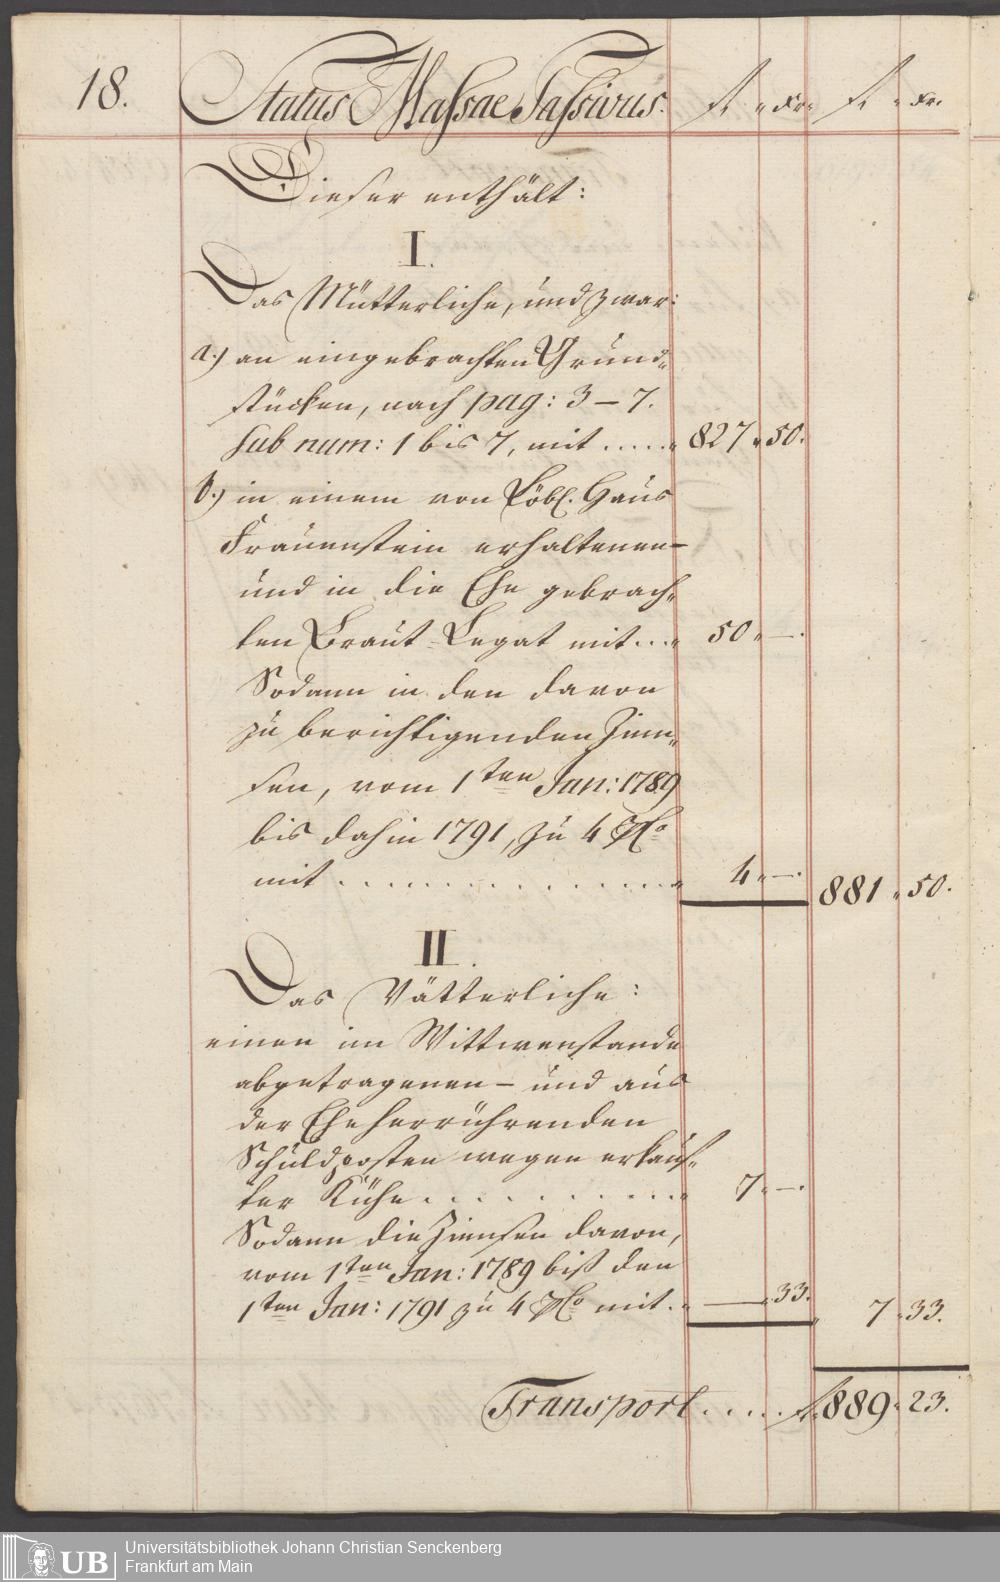 18. Status Massae Passivus. fl. " Xr. fl. " Xr.
Dieser enthält:
I.
Das Mütterliche, und zwar:
a.) an eingebrachten Grund„
stücken, nach pag: 3 – 7.
sub num: 1 bis 7, mit ..... " 827 " 50.
b.) in einem von Löbl. Haus
Frauenstein erhaltenen –
und in die Ehe gebrach„
ten Braut-Legat mit ... " 50 " —.
Sodann in den davon
zu berichtigenden Zinn„
sen, vom 1ten Jan: 1789
bis dahin 1791, zu 4 PCo
mit .............. " 4 " —. 881 " 50.
II.
Das Vätterliche:
einen im Wittwenstande
abgetragenen – und aus
der Ehe herrührenden
Schuldposten wegen erkauf„
ter Kühe .......... " 7 " —.
Sodann die Zinnsen davon,
vom 1ten Jan: 1789 biß den
1ten Jan: 1791 zu 4 PCo mit . " — " 33. 7 " 33.
Transport ..... fl. 889 " 23.
UB Universitätsbibliothek Johann Christian Senckenberg
Frankfurt am Main